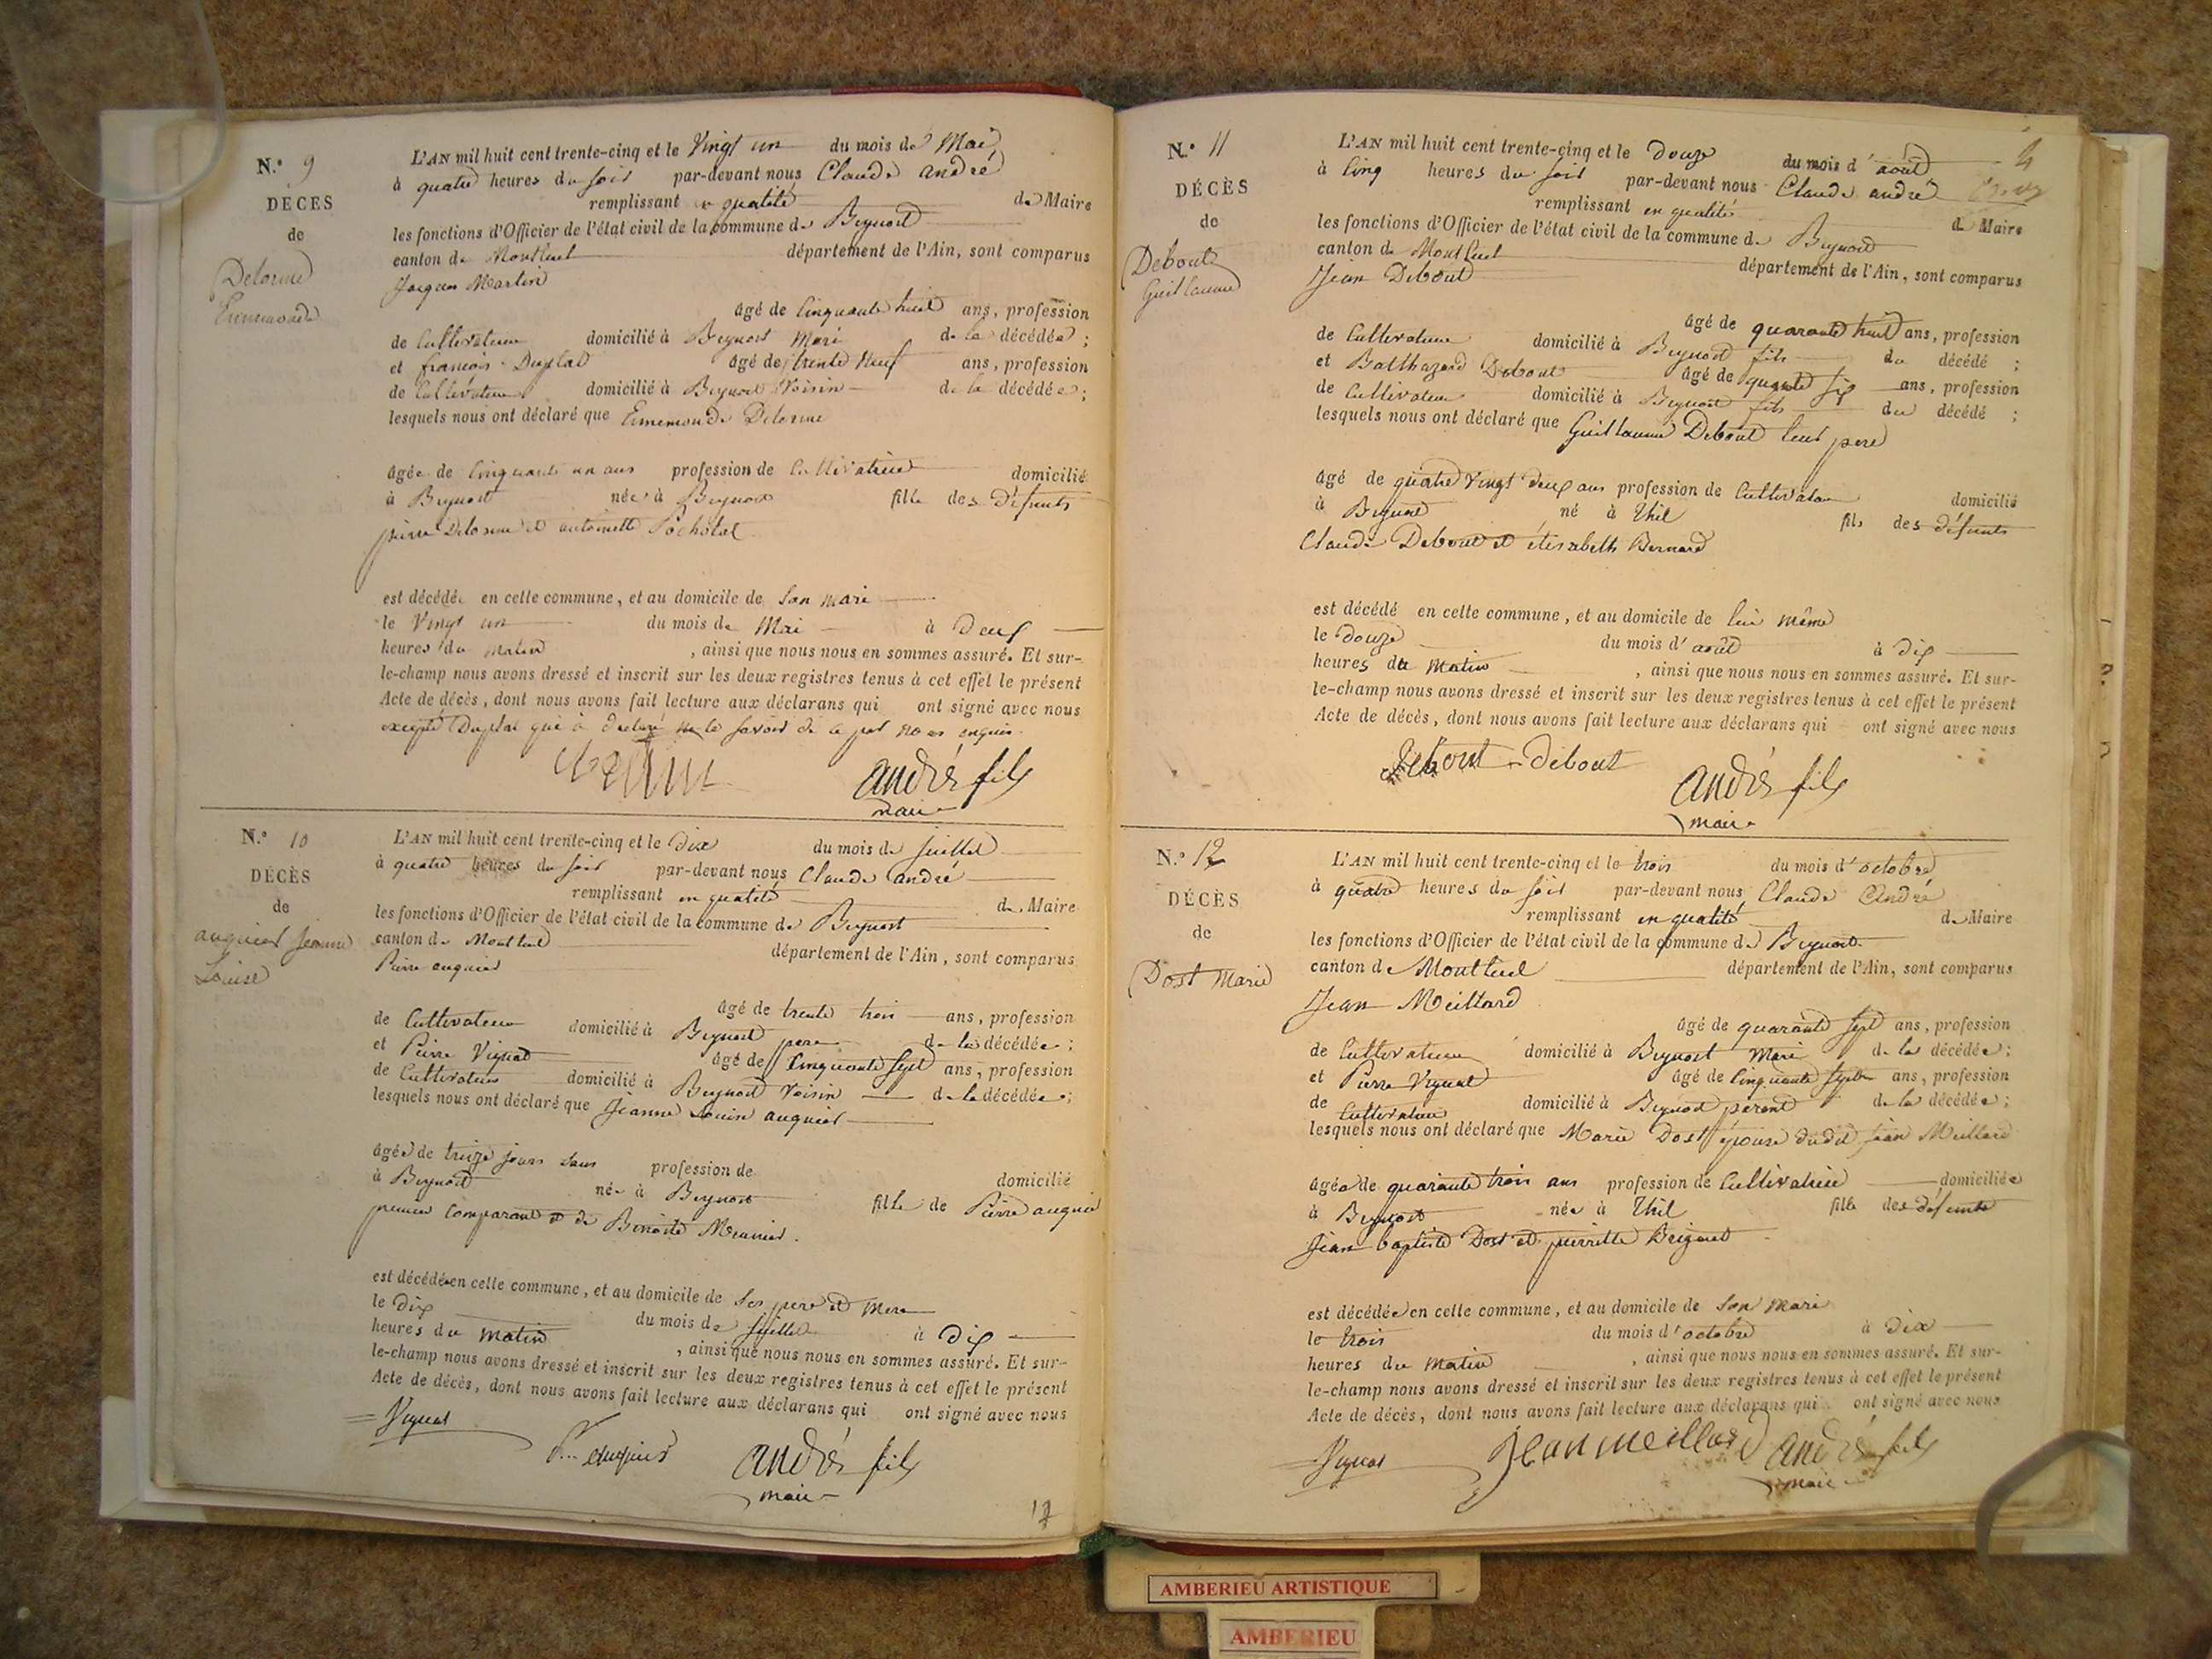 N.° 9
DÉCÈS
de
Delorme
Ennemonde
L'AN mil huit cent trente-cinq et le Vingt un du mois de Mai
à quatre heures du soir par-devant nous Claude andré
remplissant en qualité de Maire
les fonctions d'Officier de l'état civil de la commune de Beynost
canton de Montluel département de l'Ain, sont comparus
Jacques Martin
âgé de Cinquante huit ans, profession
de Cultivateur domicilié à Beynost Mari de la décédée ;
et francois Duplat âgé de trente Neuf ans, profession
de Cultivateur domicilié à Beynost Voisin de la décédée ;
lesquels nous ont déclaré que Ennemonde Delorme
âgée de Cinquante un ans profession de Cultivatrice domicilié
à Beynost née à Beynost fille des Défunts
pierre Delorme et antoinette Pochotat
est décédée en cette commune, et au domicile de Son mari
le Vingt un du mois de Mai à Deux
heures du matin , ainsi que nous nous en sommes assuré. Et sur-
le-champ nous avons dressé et inscrit sur les deux registres tenus à cet effet le présent
Acte de décès, dont nous avons fait lecture aux déclarans qui ont signé avec nous
excepté Duplat qui à declaré ne le savoir de ce par nous enquis.
andré fils
maire
N.° 10
DÉCÈS
de
auguier Jeanne
Louise
L'AN mil huit cent trente-cinq et le dix du mois de juillet
à quatre heures du soir par-devant nous Claude andré
remplissant en qualité de Maire
les fonctions d'Officier de l'état civil de la commune de Beynost
canton de Montluel département de l'Ain, sont comparus
Pierre auguier
âgé de trente trois ans, profession
de Cultivateur domicilié à Beynost pere de la décédée ;
et Pierre Vignat âgé de Cinquante Sept ans, profession
de Cultivateur domicilié à Beynost Voisin de la décédée ;
lesquels nous ont déclaré que Jeanne Louise auguier
âgée de treize jours sans profession de domicilié
à Beynost née à Beynost fille de Pierre auguier
premier Comparant et de Benoite Meunier.
est décédée en cette commune, et au domicile de Ses pere et mere
le dix du mois de juillet à dix
heures du matin , ainsi que nous nous en sommes assuré. Et sur-
le-champ nous avons dressé et inscrit sur les deux registres tenus à cet effet le présent
Acte de décès, dont nous avons fait lecture aux déclarans qui ont signé avec nous
Vignat
P... auguier andré fils
maire
N.° 11
DÉCÈS
de
Debout
Guillaume
L'AN mil huit cent trente-cinq et le douze du mois d'août
à Cinq heures du soir par-devant nous Claude andré
remplissant en qualité de Maire
les fonctions d'Officier de l'état civil de la commune de Beynost
canton de Montluel département de l'Ain, sont comparus
Jean Debout
âgé de quarante huit ans, profession
de Cultivateur domicilié à Beynost fils du décédé ;
et Balthazard Debout âgé de quarante six ans, profession
de Cultivateur domicilié à Beynost fils du décédé ;
lesquels nous ont déclaré que Guillaume Debout leur pere
âgé de quatre Vingt deux ans profession de Cultivateur domicilié
à Beynost né à Thil fils des défunts
Claude Debout et élisabeth Bernard
est décédé en cette commune, et au domicile de lui même
le douze du mois d'août à dix
heures du matin , ainsi que nous nous en sommes assuré. Et sur-
le-champ nous avons dressé et inscrit sur les deux registres tenus à cet effet le présent
Acte de décès, dont nous avons fait lecture aux déclarans qui ont signé avec nous
Debout Debout andré fils
maire
N.° 12
DÉCÈS
de
Dost Marie
L'AN mil huit cent trente-cinq et le trois du mois d'octobre
à quatre heures du soir par-devant nous Claude André
remplissant en qualité de Maire
les fonctions d'Officier de l'état civil de la commune de Beynost
canton de Montluel département de l'Ain, sont comparus
Jean Meillard
âgé de quarante sept ans, profession
de Cultivateur domicilié à Beynost Mari de la décédée ;
et Pierre Vignat âgé de Cinquante Sept ans, profession
de Cultivateur domicilié à Beynost parent de la décédée ;
lesquels nous ont déclaré que Marie Dost épouse dudit jean Meillard
âgée de quarante trois ans profession de Cultivatrice domiciliée
à Beynost née à Thil fille des défunts
Jean baptiste Dost et pierrette Brignet
est décédée en cette commune, et au domicile de Son mari
le trois du mois d'octobre à dix
heures du matin , ainsi que nous nous en sommes assuré. Et sur-
le-champ nous avons dressé et inscrit sur les deux registres tenus à cet effet le présent
Acte de décès, dont nous avons fait lecture aux déclarans qui ont signé avec nous
Vignat Jean meillard andré fils
maire
AMBERIEU ARTISTIQUE
AMBERIEU